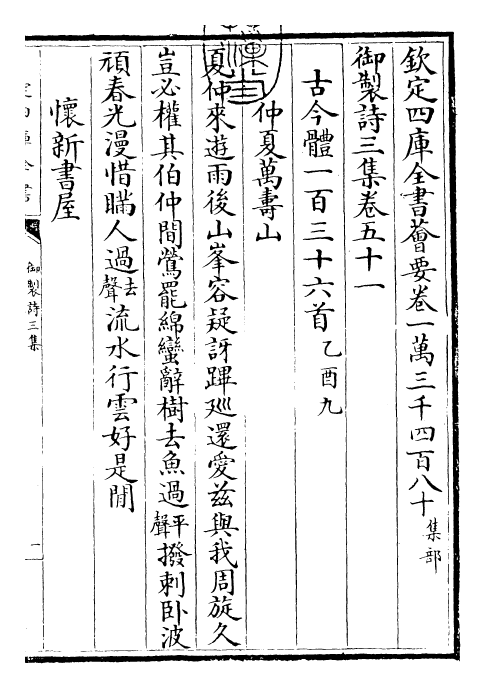 欽定四庫全書薈要卷一萬三千四百八十 集部
御製詩三集卷五十一
古今體一百三十六首 乙酉九
仲夏萬壽山
夏仲來遊雨後山峯容疑訝蹕廵還愛兹與我周旋久
豈必權其伯仲間鶯罷綿蠻辭樹去魚過平聲撥刺卧波
頑春光漫惜瞞人過去聲流水行雲好是閒
懷新書屋
御製詩三集